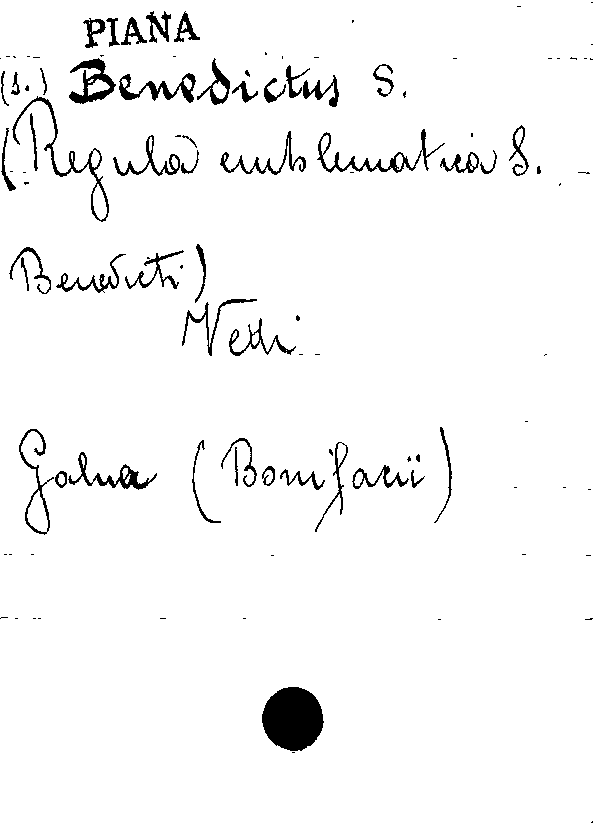 PIANA
(s.) Benedictus S.
(Regula emblematica S.
Benedicti)
Vedi
Galua (Bonifacii)